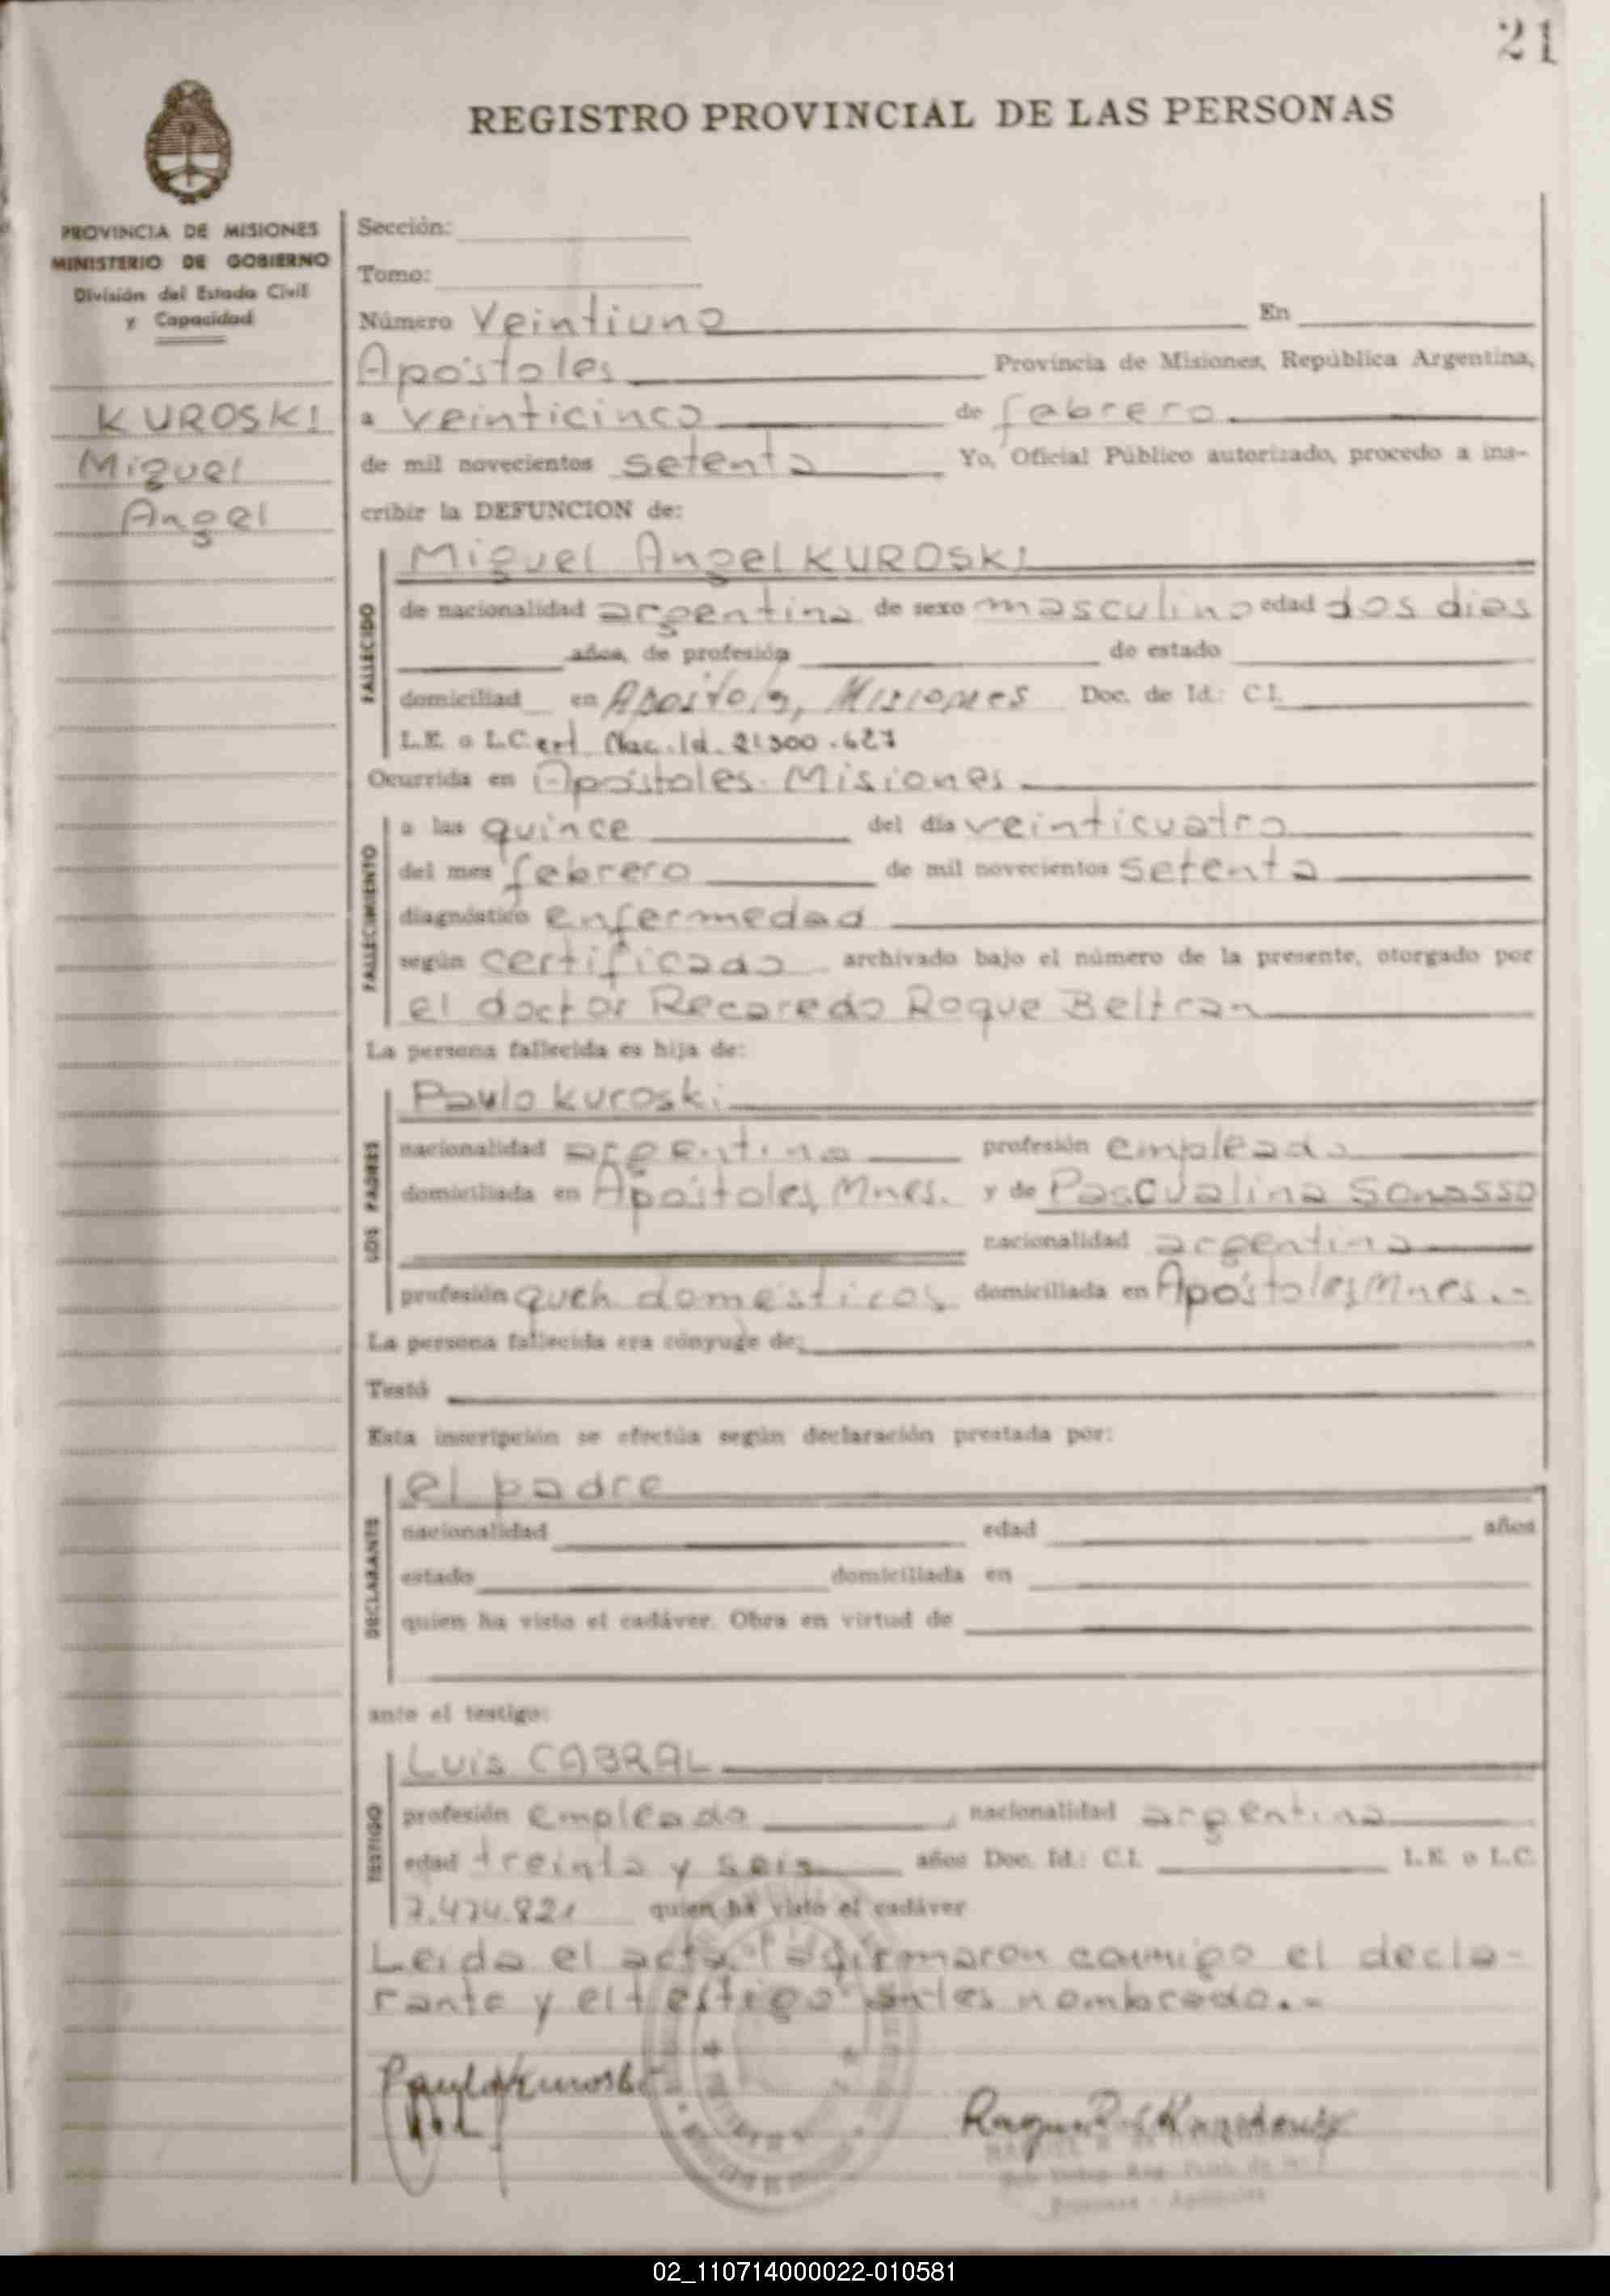 21
REGISTRO PROVINCIAL DE LAS PERSONAS
PROVINCIA DE MISIONES
MINISTERIO DE GOBIERNO
División del Estado Civil
y Capacidad
KUROSKI
Miguel
Angel
Sección:
Tomo:
Número Veintiuno En
Apóstoles Provincia de Misiones, República Argentina,
a veinticinco de febrero
de mil novecientos setenta Yo, Oficial Público autorizado, procedo a ins-
cribir la DEFUNCION de:
FALLECIDO
Miguel Angel KUROSKI
de nacionalidad argentina de sexo masculino edad dos dias
años, de profesión de estado
domiciliad en Apostoles, Misiones Doc. de Id.: C.I.
L.E. o L.C. ert. Nac. Id. 21.300.627
Ocurrida en Apóstoles. Misiones
FALLECIMIENTO
a las quince del día veinticuatro
del mes febrero de mil novecientos setenta
diagnóstico enfermedad
según certificado archivado bajo el número de la presente, otorgado por
el doctor Recaredo Roque Beltran
La persona fallecida es hija de:
LOS PADRES
Paulo Kuroski
nacionalidad argentina profesión empleado
domiciliada en Apóstoles, Mnes. y de Pascualina
nacionalidad argentina
profesión queh domésticos domiciliada en Apóstoles, Mnes. .-
La persona fallecida era cónyuge de:
Testó
Esta inscripción se efectúa según declaración prestada por:
DECLARANTE
el padre
nacionalidad edad años
estado domiciliada en
quien ha visto el cadáver. Obra en virtud de
ante el testigo:
TESTIGO
Luis CABRAL
profesión empleado , nacionalidad argentina
edad treinta y seis años Doc. Id.: C.I. L.E. o L.C.
7.474.821 quien ha visto el cadáver
Leida el acta la firmaron conmigo el decla-
rante y el testigo antes nombrado.-
Paulo Kuroski
02_110714000022-010581